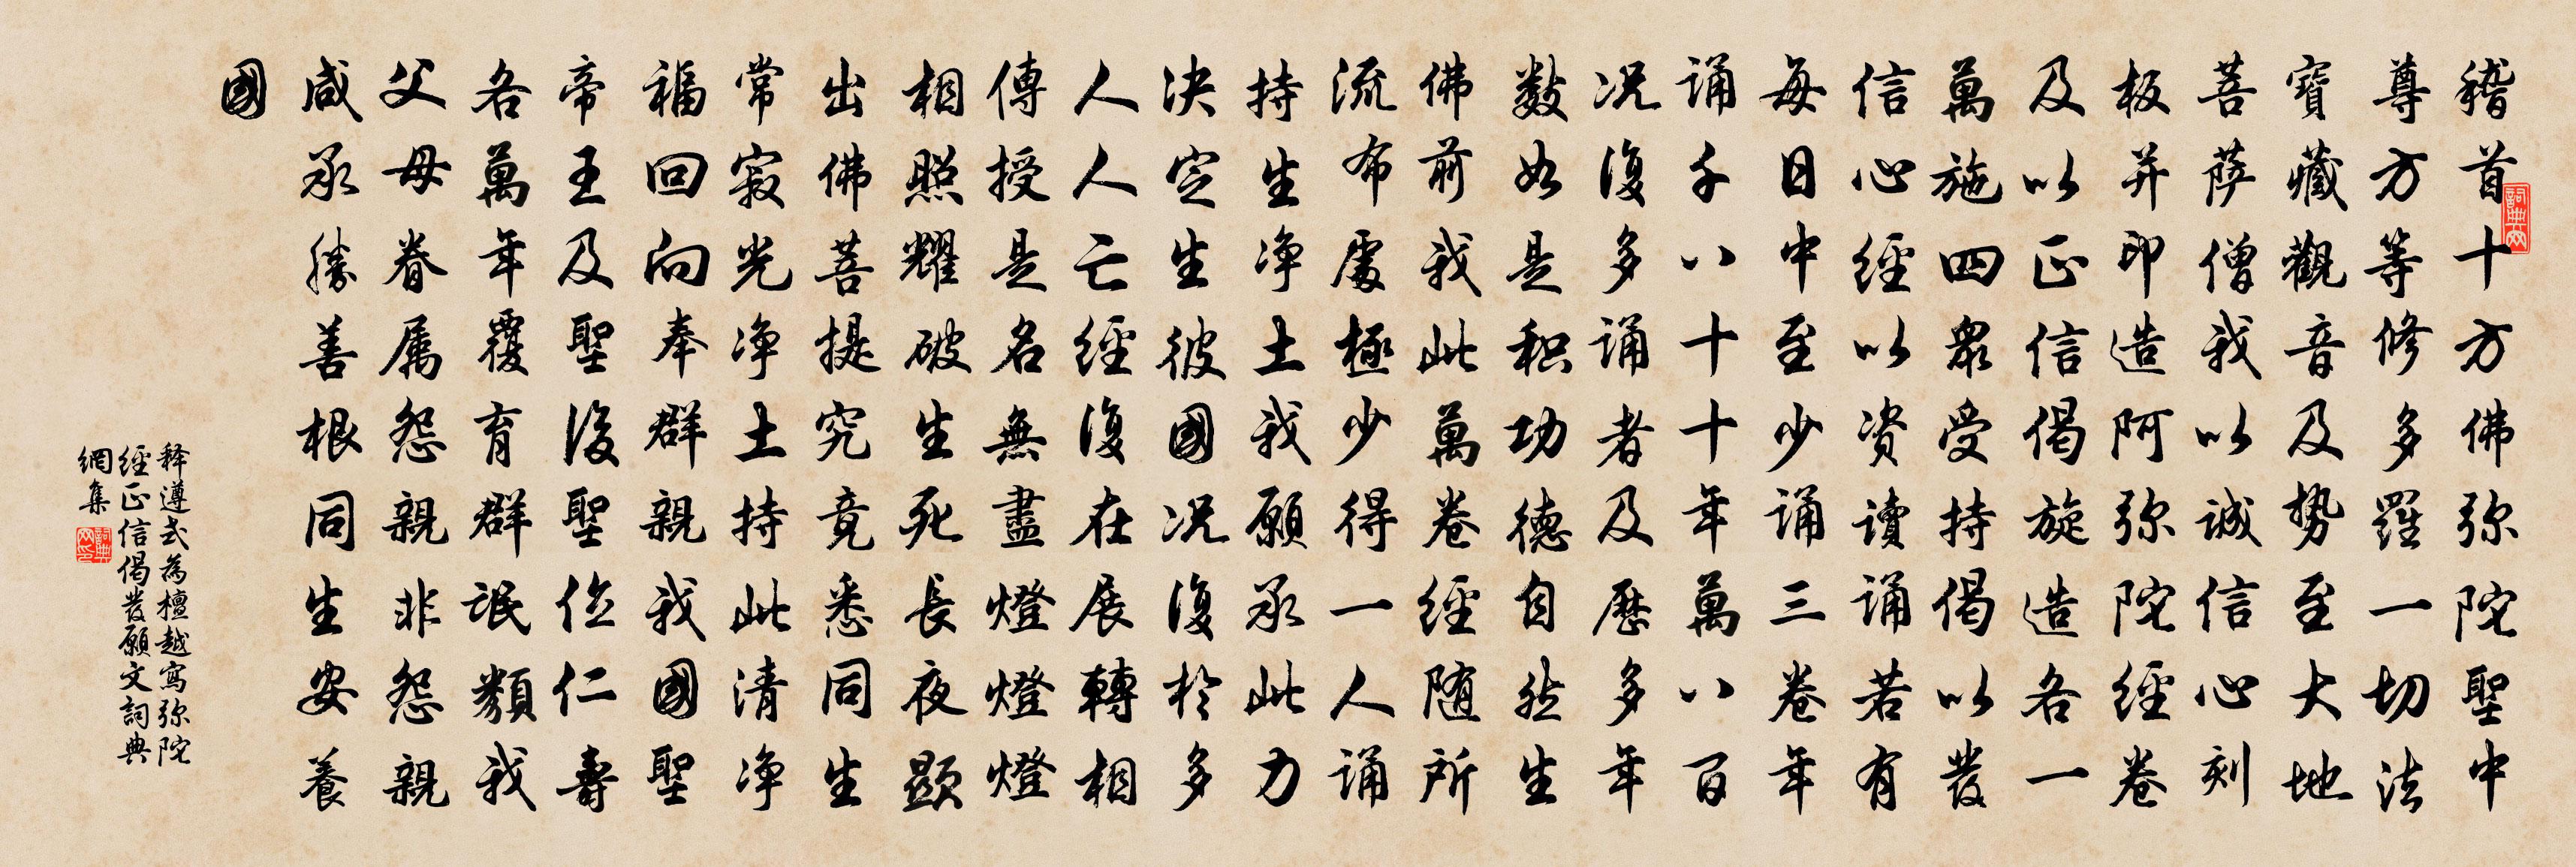 稽首十方佛弥陀聖中
尊方等修多羅一切法
寶藏觀音及势至大地
菩萨僧我以诚信心刻
板并印造阿弥陀經卷
及以正信偈旋造各一
萬施四眾受持偈以發
信心經以资讀诵若有
每日中至少诵三卷年
诵千八十十年萬八百
况復多诵者及歷多年
数如是积功德自然生
佛前我此萬卷經随所
流布處極少得一人诵
持生净土我願承此力
决定生彼國况復於多
人人亡經復在展轉相
傳授是名無盡燈燈燈
相照耀破生死長夜顕
出佛菩提究竟悉同生
常寂光净土持此清净
福回向奉群親我國聖
帝王及聖後聖位仁壽
各萬年覆育群氓類我
父母眷属怨親非怨親
咸承勝善根同生安養
國
释遵式為檀越寫弥陀
經正信偈發願文詞典
網集
詞典网
詞典网印